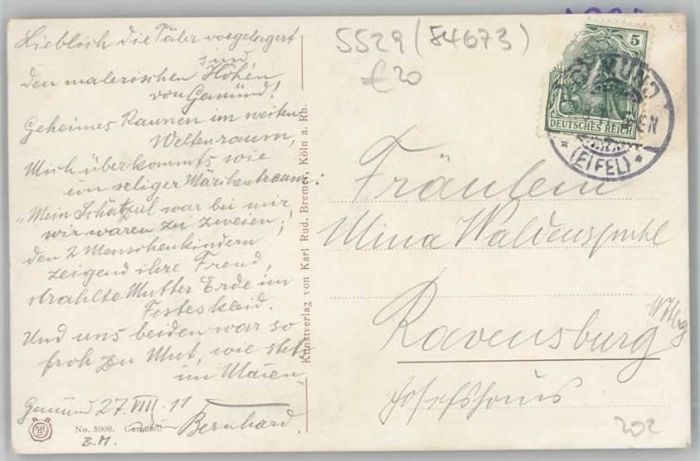 Lieblich die Täler vorgelagert
sind,
den malerischen Höhen
von Gemünd!
Geheimes Raunen im weiten
Weltenraum,
Mich überkommts wie
ein seliger Märchentraum:
"Mein Schatzerl war bei mir
wir waren zu zweien;
den 2 Menschenkindern
zeigend ihre Freud,
strahlte Mutter Erde im
Festeskleid.
Und uns beiden war so
froh zu Mut, wie stets
im Maien,
Gemünd 27. VIII. 11
Bernhard.
No. 5000. Gemünd
B.M.
Kunstverlag von Karl Rud. Bremer, Köln a. Rh.
5529 (84673)
£20
5
DEUTSCHES REICH
GEMÜND
(EIFEL)
Fräulein
Mina Waldenspuhl
Ravensburg
Wttbg
Josefshaus
202